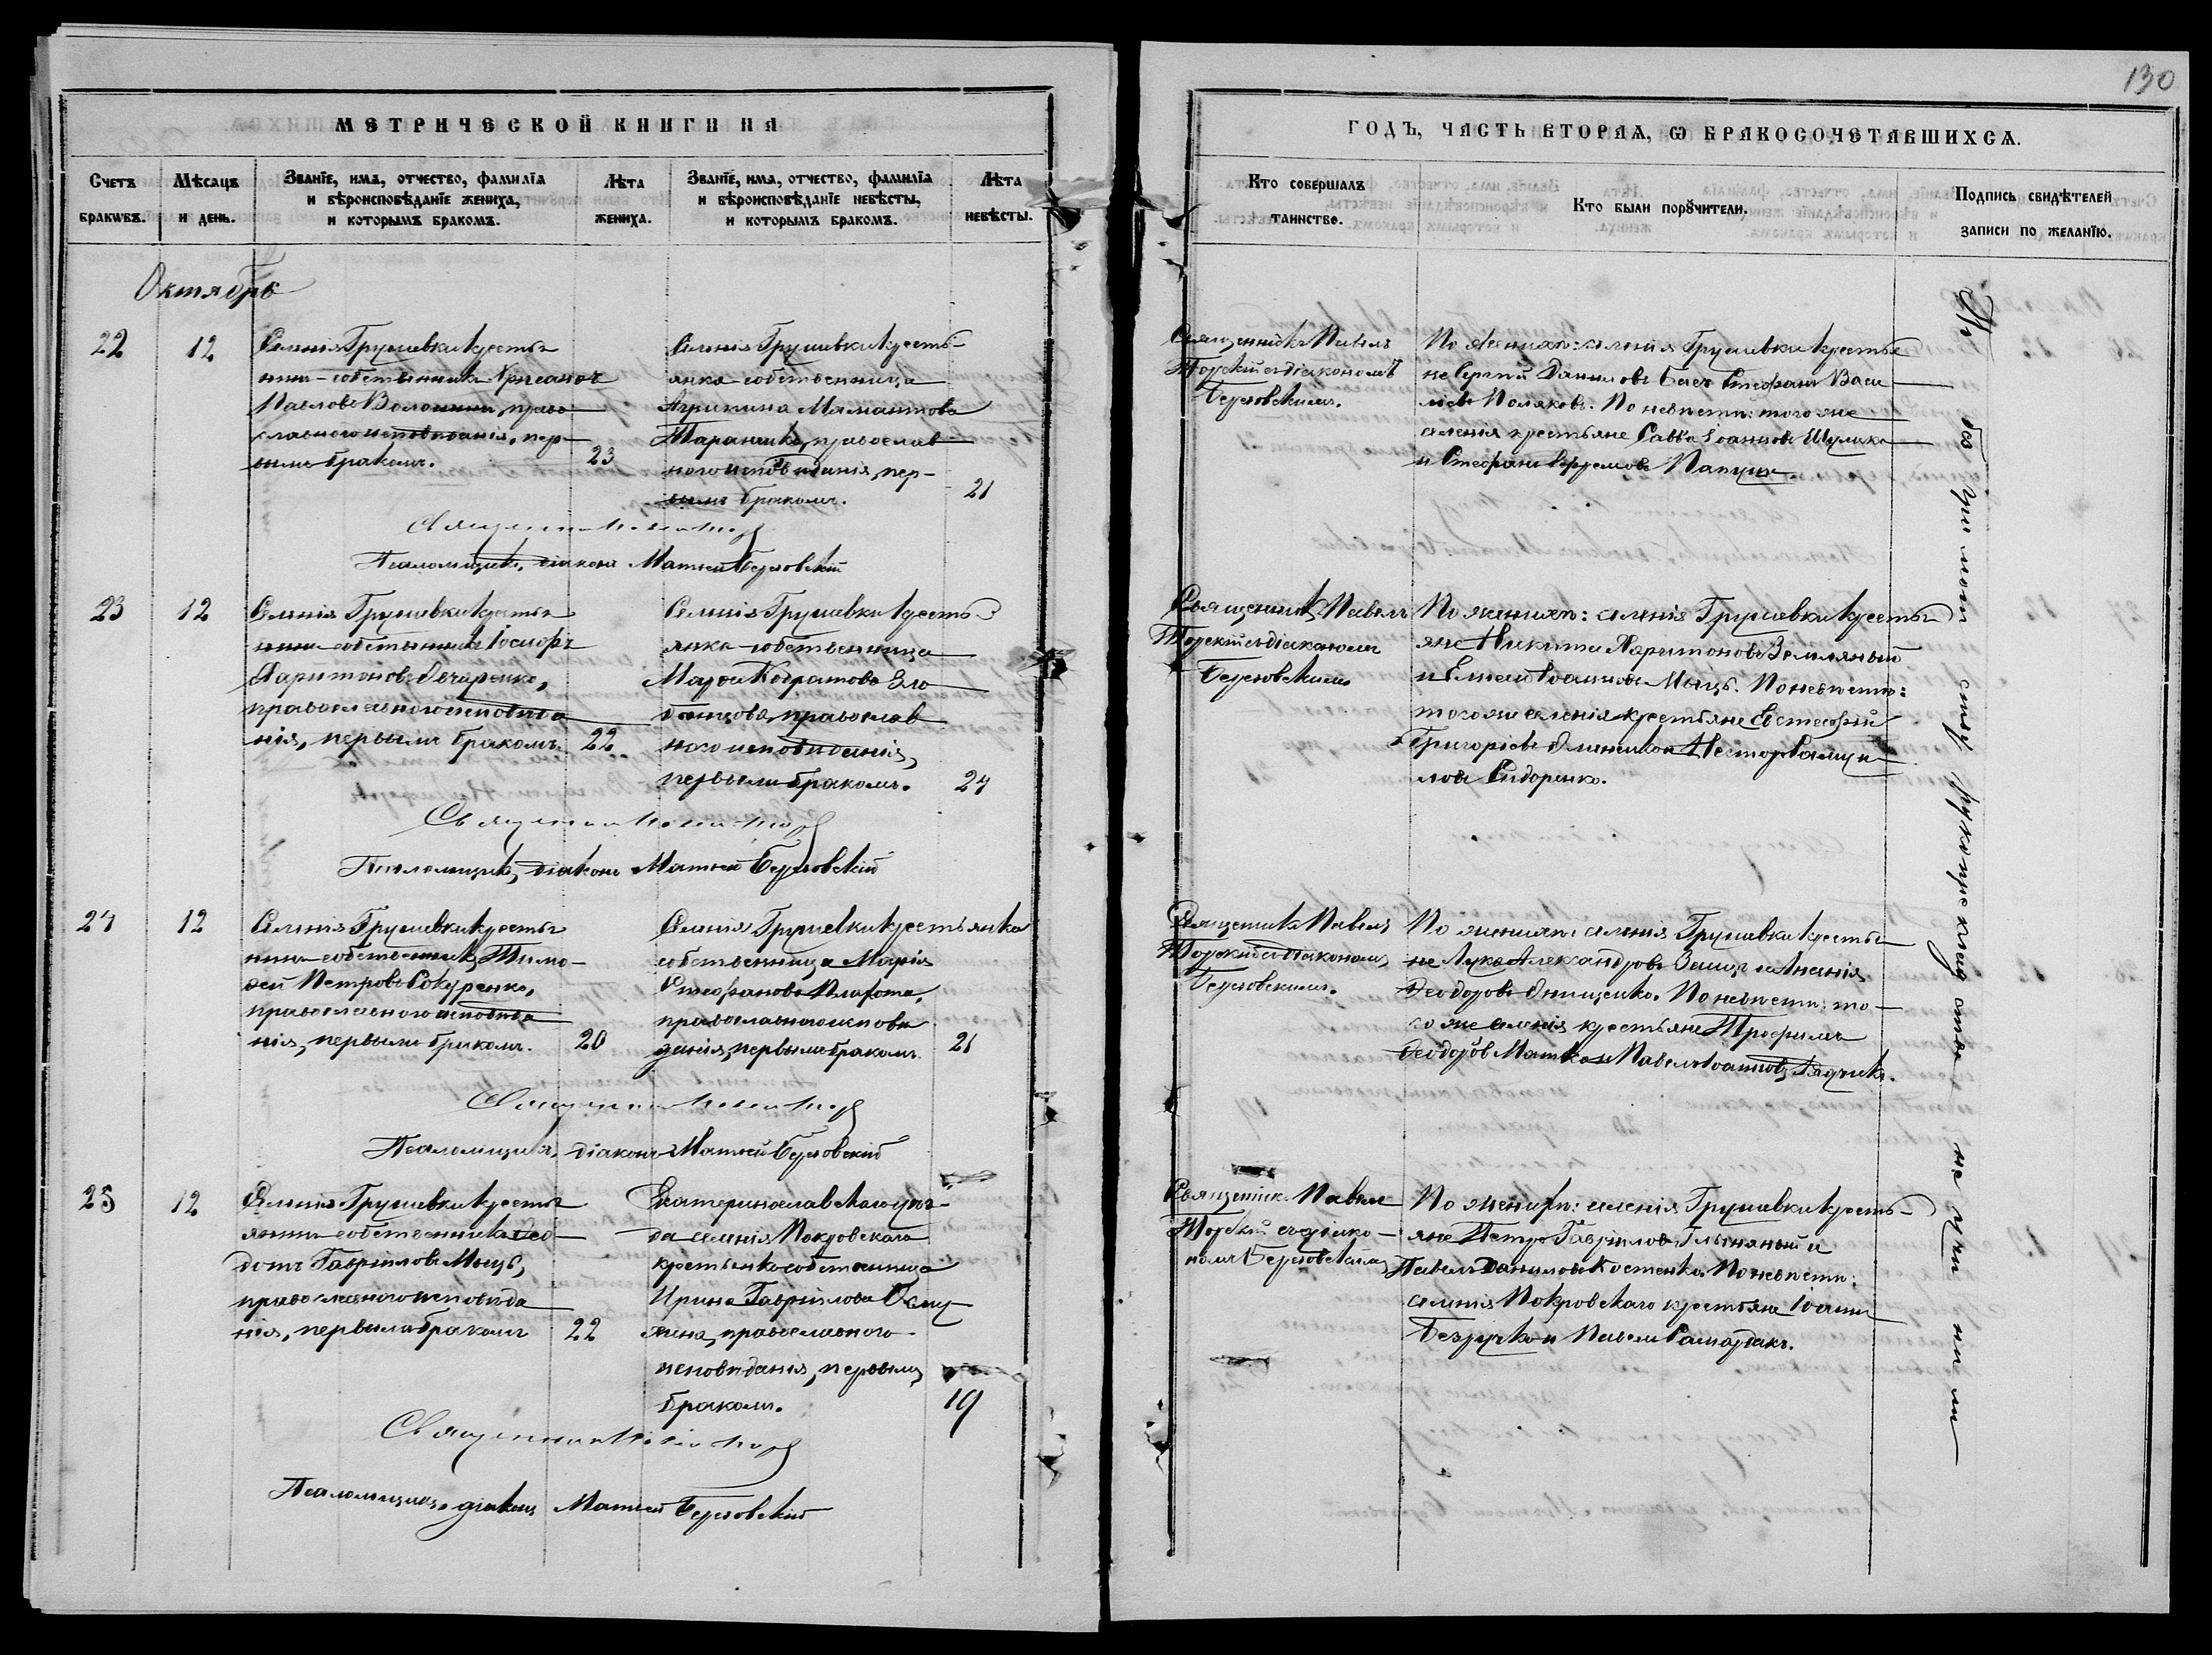 130
МЕТРИЧЕСКОЙ КНИГИ НА
Счетъ браковъ.
Мѣсяцъ и день.
Званїе, имя, отчество, фамилїя
и вѣроисповѣданїе жениха,
и которымъ бракомъ.
Лѣта жениха.
Званїе, имя, отчество, фамилїя
и вѣроисповѣданїе невѣсты,
и которымъ бракомъ.
Лѣта невѣсты.
ГОДЪ, ЧАСТЬ ВТОРАЯ, Ѡ БРАКОСОЧЕТАВШИХСЯ.
Кто совершалъ
таинство.
Кто были порꙋчители.
Подпись свидѣтелей
записи по желанїю.
Октябрь
22
12
Селенія Грушевки крестья
нинъ-собственникъ
Павловъ
право
славного исповѣданія, пер-
вымъ бракомъ.
23
Селенія Грушевки кресть-
янка-собственница
Агрипина Мамантова
Тараненко, православ
ного исповѣданія, пер-
вымъ бракомъ.
21
Священникъ Павелъ
Торскій съ діакономъ
Березовскимъ.
По женихѣ: селенія Грушевки крестья
не Сергій Даниловъ
Стефанъ Васи
льевъ Поляковъ. По невѣстѣ: того же
селенія крестьяне Савва Іоанновъ Шулика
и Стефанъ Ефремовъ
Священникъ
Псаломщикъ, діаконъ Матѳей Березовскій
23
12
Селенія Грушевки крестья
нинъ собственникъ Іосифъ
Харитоновъ Овчаренко,
православного исповѣда
нія, первымъ бракомъ.
22
Селенія Грушевки кресть
янка-собственница
Марѳа Кодратова Зло
бинцова, православ
ного исповѣданія,
первымъ бракомъ.
24
Священникъ Павелъ
Торскій съ діакономъ
Березовскимъ
По женихѣ: селенія Грушевки крестья
яне Никита Харитоновъ Земляный
и Іоанновъ Мыцъ. По невѣстѣ:
того же селенія крестьяне Евстафій
Григоріевъ Олиниковъ и Несторъ Самуи
ловъ Сидоренко.
Священникъ
Псаломщикъ, діаконъ Матѳей Березовскій
24
12
Селенія Грушевки крестья
нинъ собственникъ Тимо-
ѳей Петровъ Сокуренко,
православного исповѣда
нія, первымъ бракомъ.
20
Селенія Грушевки крестьянка
собственница Марія
Стефанова Плахота,
православного исповѣ
данія, первымъ бракомъ.
21
Священникъ Павелъ
Торскій съ діакономъ
Березовскимъ.
По женихѣ: селенія Грушевки крестья
не Лука Александровъ Заяцъ и Ананія
Ѳеодоровъ Онищенко. По невѣстѣ: то-
го же селенія крестьяне Трофимъ
Ѳеодоровъ и Павелъ Іоанновъ
Священникъ
Псаломщикъ, діаконъ Матѳей Березовскій
25
12
Селенія Грушевки кресть
янинъ собственникъ Ѳео-
дотъ Гавріиловъ Мыцъ,
православного исповѣда
нія, первымъ бракомъ
22
Екатеринославского уѣз-
да селенія Покровского
крестьянка собственница
Ирина Гавріилова
православного
исповѣданія, первымъ
бракомъ.
19
Священникъ Павелъ
Торскій съ діако-
номъ Березовскимъ
По женихѣ: селенія Грушевки кресть-
яне Петръ Гавріиловъ Глыняный и
Павелъ Даниловъ Костенко. По невѣстѣ:
селенія Покровского крестьяне Іоаннъ
Безручко и Павелъ Самардакъ.
Священникъ
Псаломщикъ, діаконъ Матѳей Березовскій